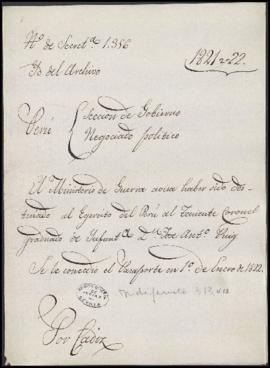 Nº de Secretª 1.356
Yd del Archivo
1821 y 22.
Perú
Seccion de Gobierno
Negociado político
El Ministerio de Guerra avisa haber sido des-
tinado al Egercito del Perú al Teniente Coronel
graduado de Infantª Dn. José Antº Puig
Se le concedió el Pasaporte en 1º de Enero de 1822
ARCHIVO GENERAL DE INDIAS
SEVILLA
Indiferente 313
Por Cádiz